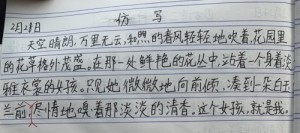 仿写
2月28日
天空晴朗，万里无云，和煦的春风轻轻地吹着，花园里
的花草格外茂盛。在那一处鲜艳的花丛中，站着一个身着淡
雅衣裳的女孩。只见她微微地向前倾，凑到一朵白玉
兰前，尽情地嗅着那淡淡的清香。这个女孩，就是我。